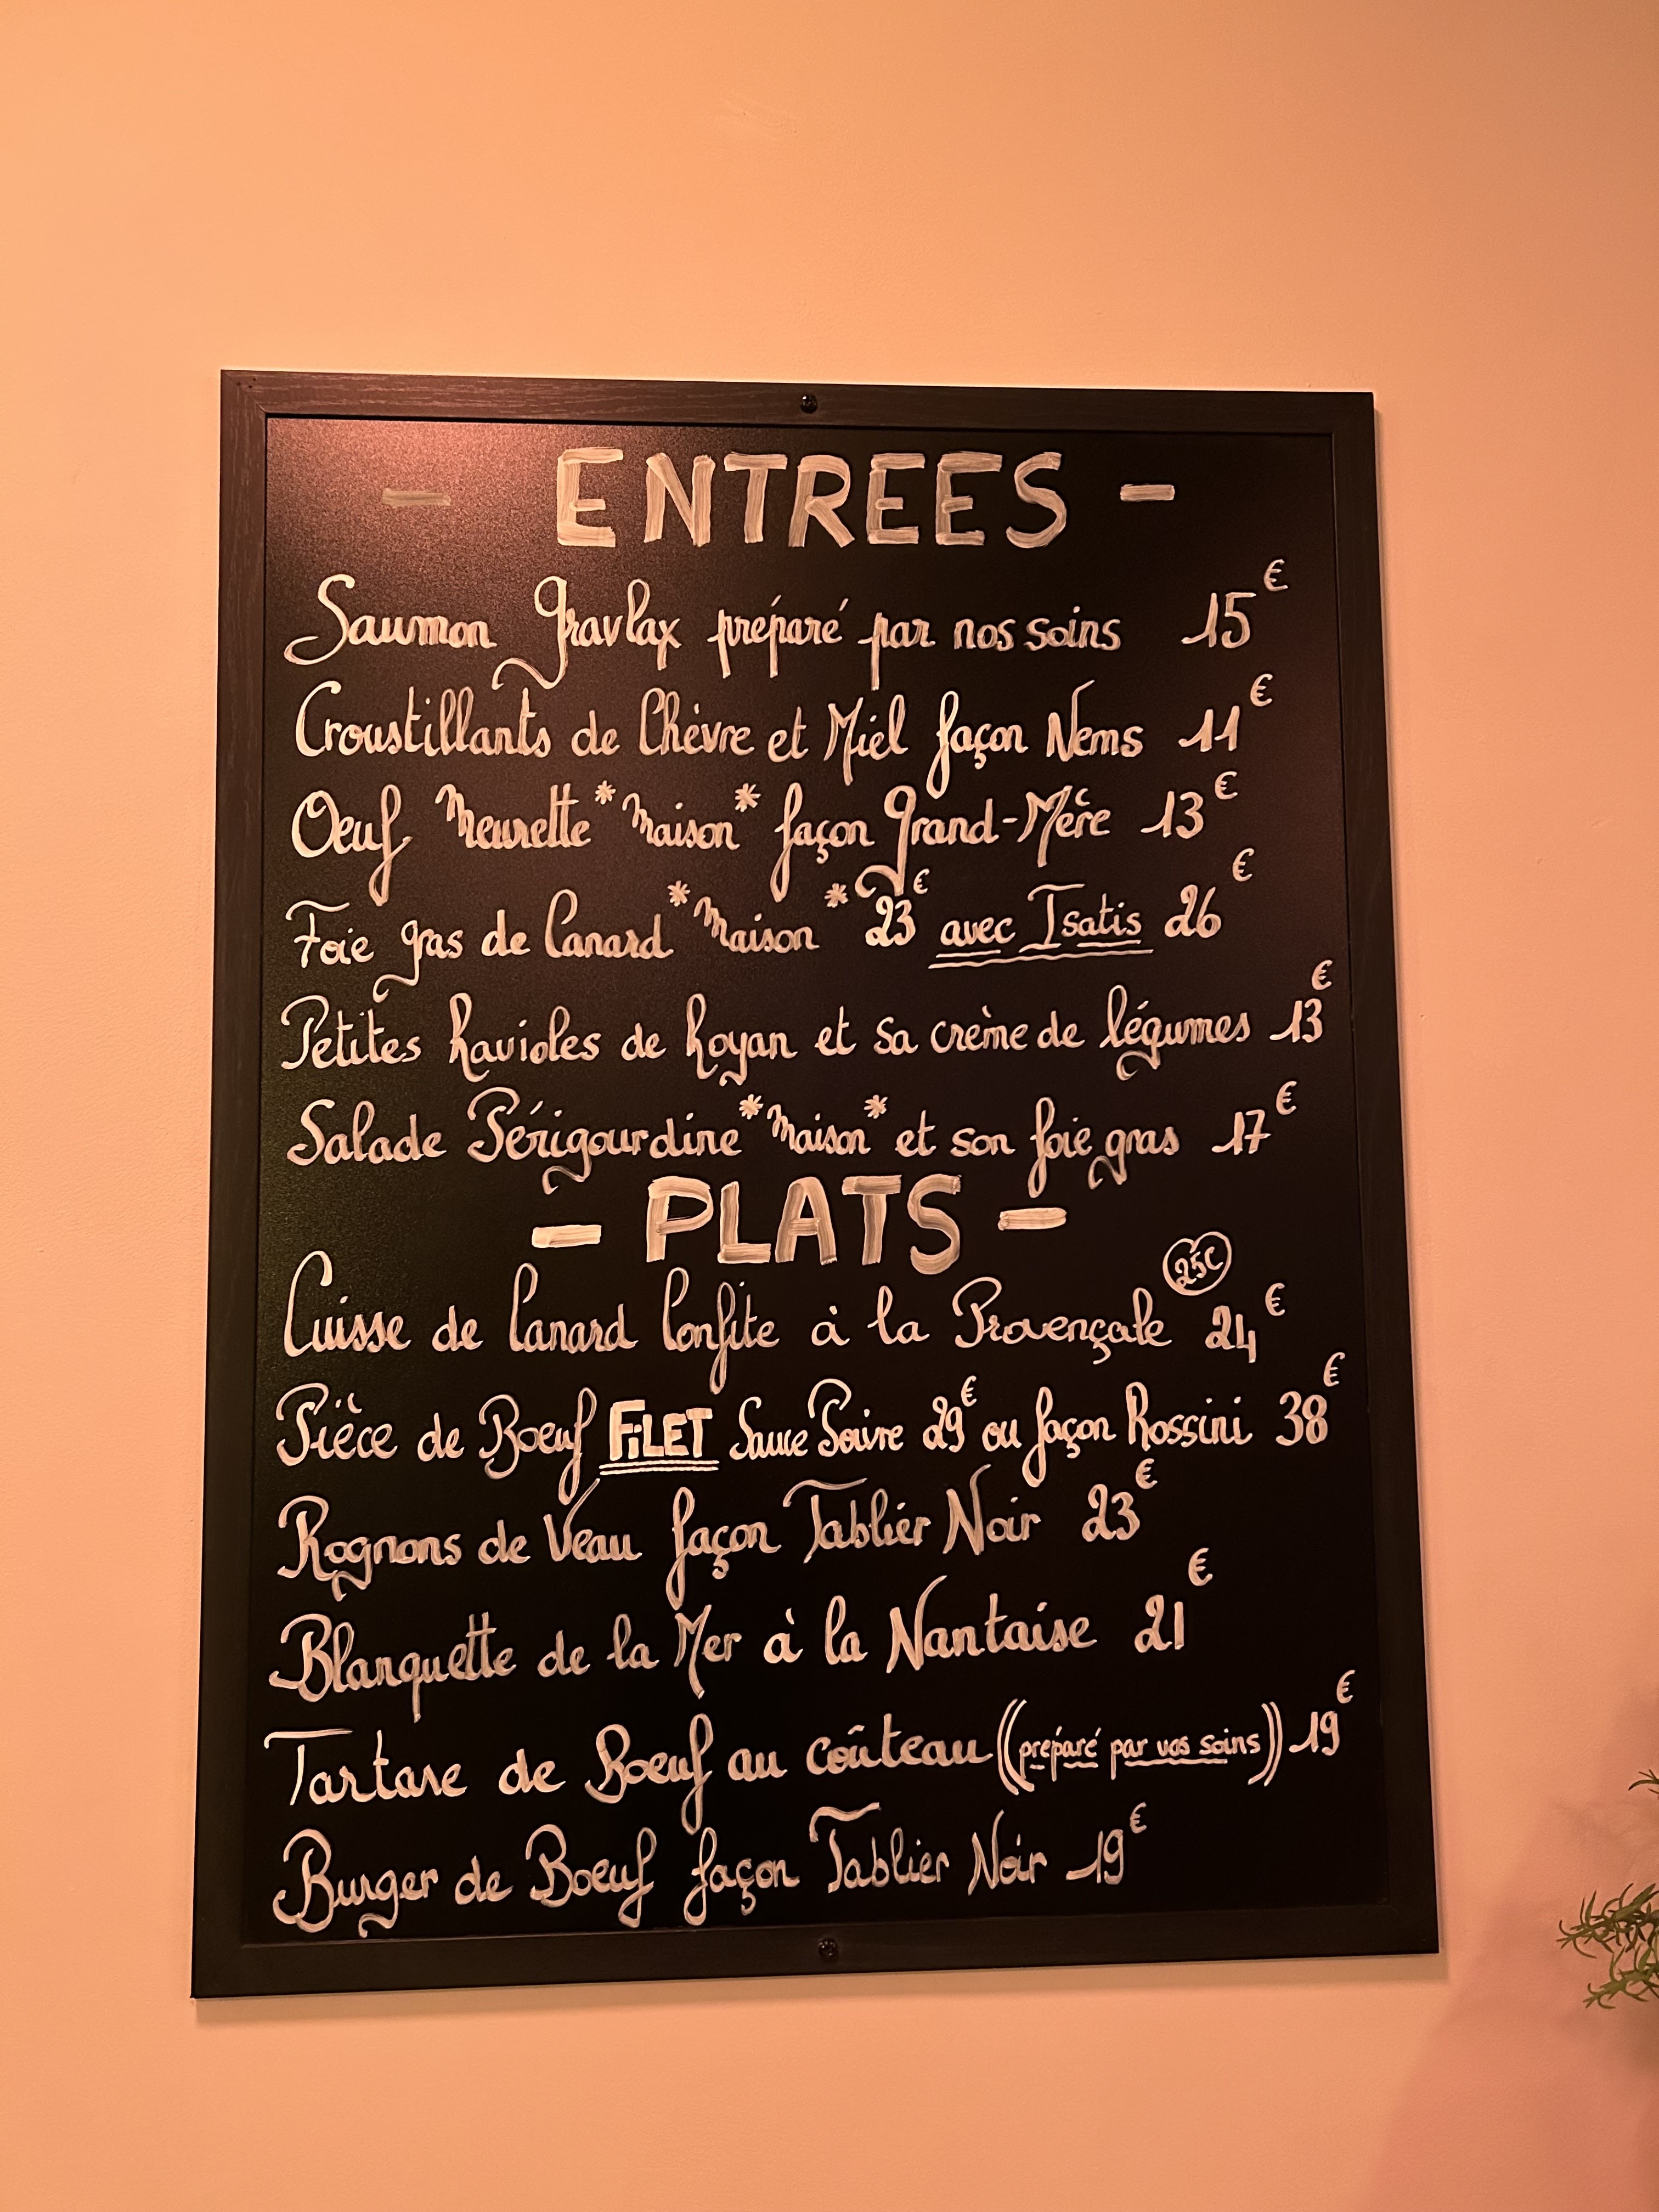 - ENTREES -
Saumon gravlax préparé par nos soins 15€
Croustillants de Chèvre et Miel façon Nems 11€
Oeuf Meurette *Maison* façon grand-Mère 13€
Foie gras de Canard *Maison* 23€ avec Isatis 26€
Petites Ravioles de Royan et sa crème de légumes 13€
Salade Périgourdine *Maison* et son foie gras 17€
- PLATS -
Cuisse de Canard Confite à la Provençale 25C 24€
Pièce de Boeuf FiLET Sauce Poivre 29€ ou façon Rossini 38€
Rognons de Veau façon Tablier Noir 23€
Blanquette de la Mer à la Nantaise 21€
Tartare de Boeuf au coûteau ((préparé par vos soins)) 19€
Burger de Boeuf façon Tablier Noir 19€